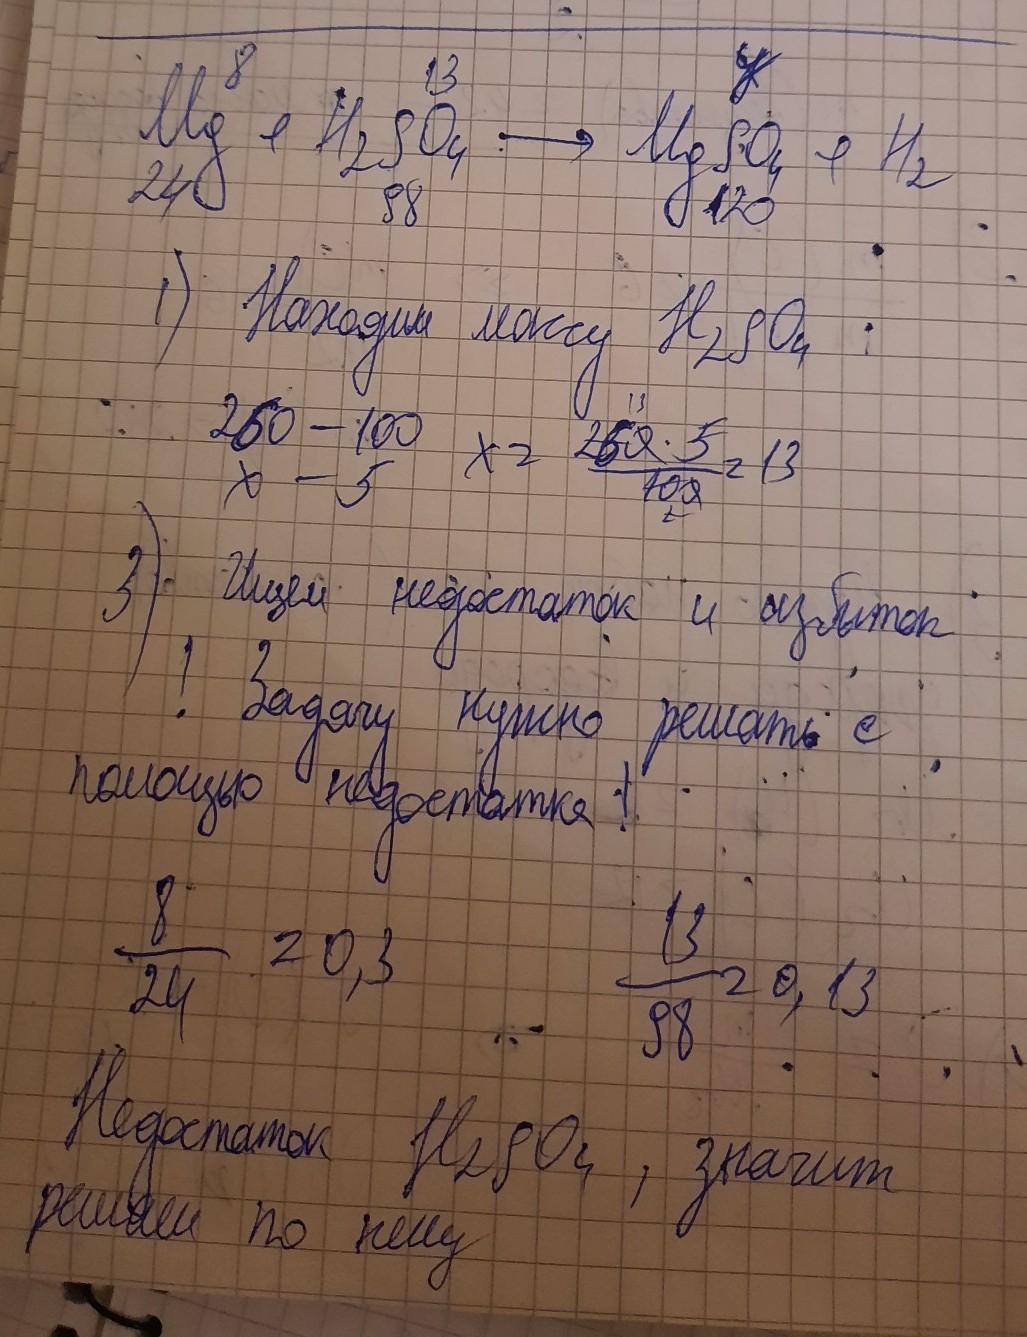 8 13 y
Mg + H₂SO₄ → MgSO₄ + H₂
24 98 120
1) Находим массу H₂SO₄ :
13
260 – 100 x = 260 · 5 / 100 = 13
x – 5
3) Ищем недостаток и избыток
! Задачу нужно решать с
помощью недостатка !
8/24 = 0,3 13/98 = 0,13
Недостаток H₂SO₄ , значит
решаем по нему